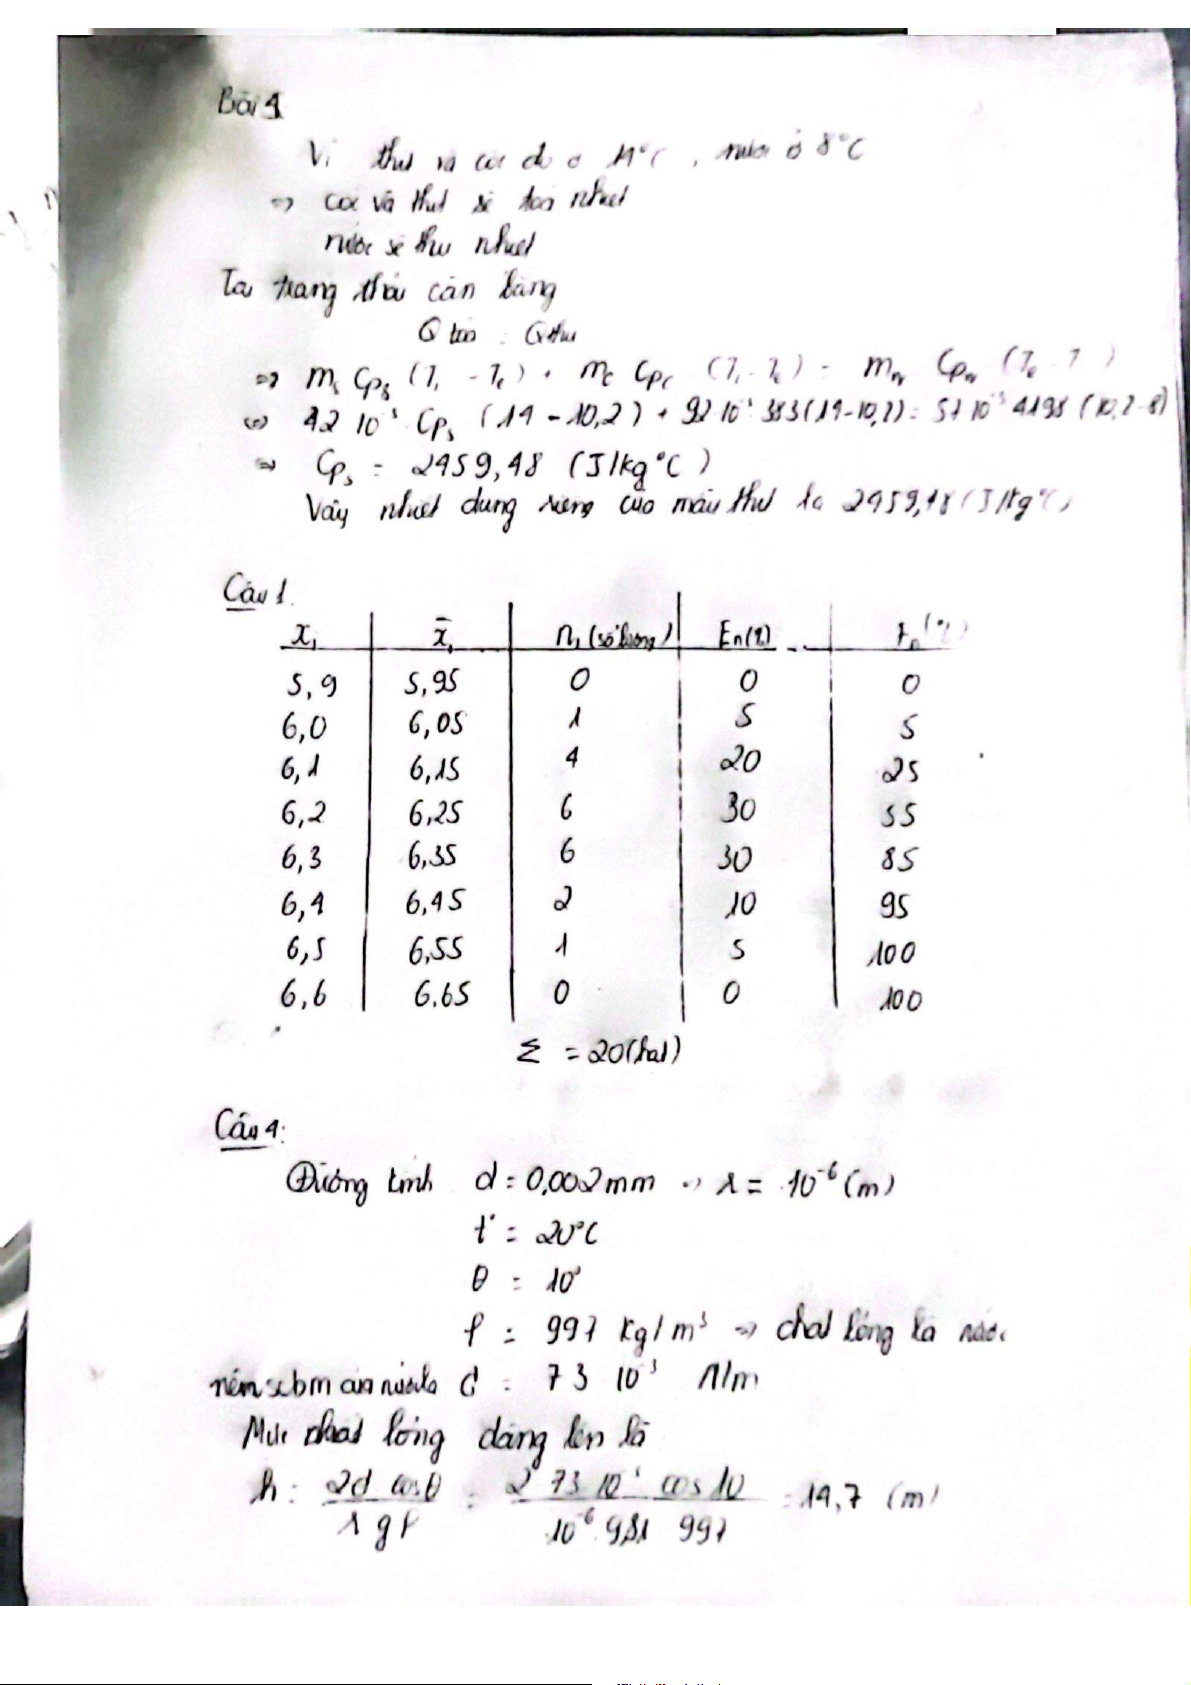 Bài 4
Vì thịt và cốc đo ở 14°C, nước ở 8°C
=> cốc và thịt sẽ toả nhiệt
nước sẽ thu nhiệt
Tại trạng thái cân bằng
Q toả = Q thu
=> m Cp (T - T) + m Cp (T - T) = m Cp (T - T)
<=> 42 10 Cps (14 - 10,2) + 92 10 383(14-10,2) = 57 10 4198 (10,2-8)
=> Cps = 2459,48 (J/kg°C)
Vậy nhiệt dung riêng của mẫu thịt là 2459,48 (J/kg°C)
Câu 1.
xi | x̄i | ni (số lượng) | En(%) | Fn(%)
5,9 | 5,95 | 0 | 0 | 0
6,0 | 6,05 | 1 | 5 | 5
6,1 | 6,15 | 4 | 20 | 25
6,2 | 6,25 | 6 | 30 | 55
6,3 | 6,35 | 6 | 30 | 85
6,4 | 6,45 | 2 | 10 | 95
6,5 | 6,55 | 1 | 5 | 100
6,6 | 6.65 | 0 | 0 | 100
Σ = 20(hạt)
Câu 4:
Đường kính d = 0,002mm => r = 10⁻⁶ (m)
t° = 20°C
θ = 10°
ρ = 997 kg/m³ => chất lỏng là nước
nên scbm của nước là σ = 73 10⁻³ N/m
Mức chất lỏng dâng lên là
h = 2σ cosθ / r g ρ = 2 73 10⁻³ cos 10 / 10⁻⁶ 9,81 997 = 14,7 (m)